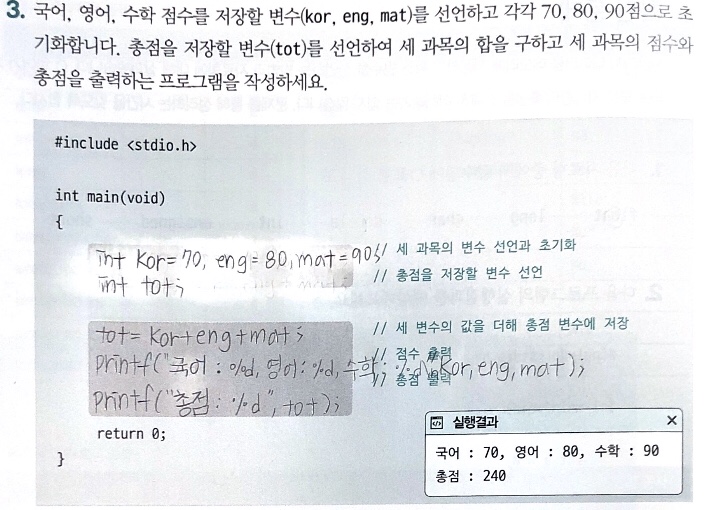 3. 국어, 영어, 수학 점수를 저장할 변수(kor, eng, mat)를 선언하고 각각 70, 80, 90점으로 초
기화합니다. 총점을 저장할 변수(tot)를 선언하여 세 과목의 합을 구하고 세 과목의 점수와
총점을 출력하는 프로그램을 작성하세요.
#include <stdio.h>
int main(void)
{
int kor=70, eng=80, mat=90; // 세 과목의 변수 선언과 초기화
int tot; // 총점을 저장할 변수 선언
tot= kor+eng+mat; // 세 변수의 값을 더해 총점 변수에 저장
// 점수 출력
printf("국어 : %d, 영어 : %d, 수학 : %d\n", kor, eng, mat);
// 총점 출력
printf("총점 : %d", tot);
return 0;
}
실행결과
국어 : 70, 영어 : 80, 수학 : 90
총점 : 240